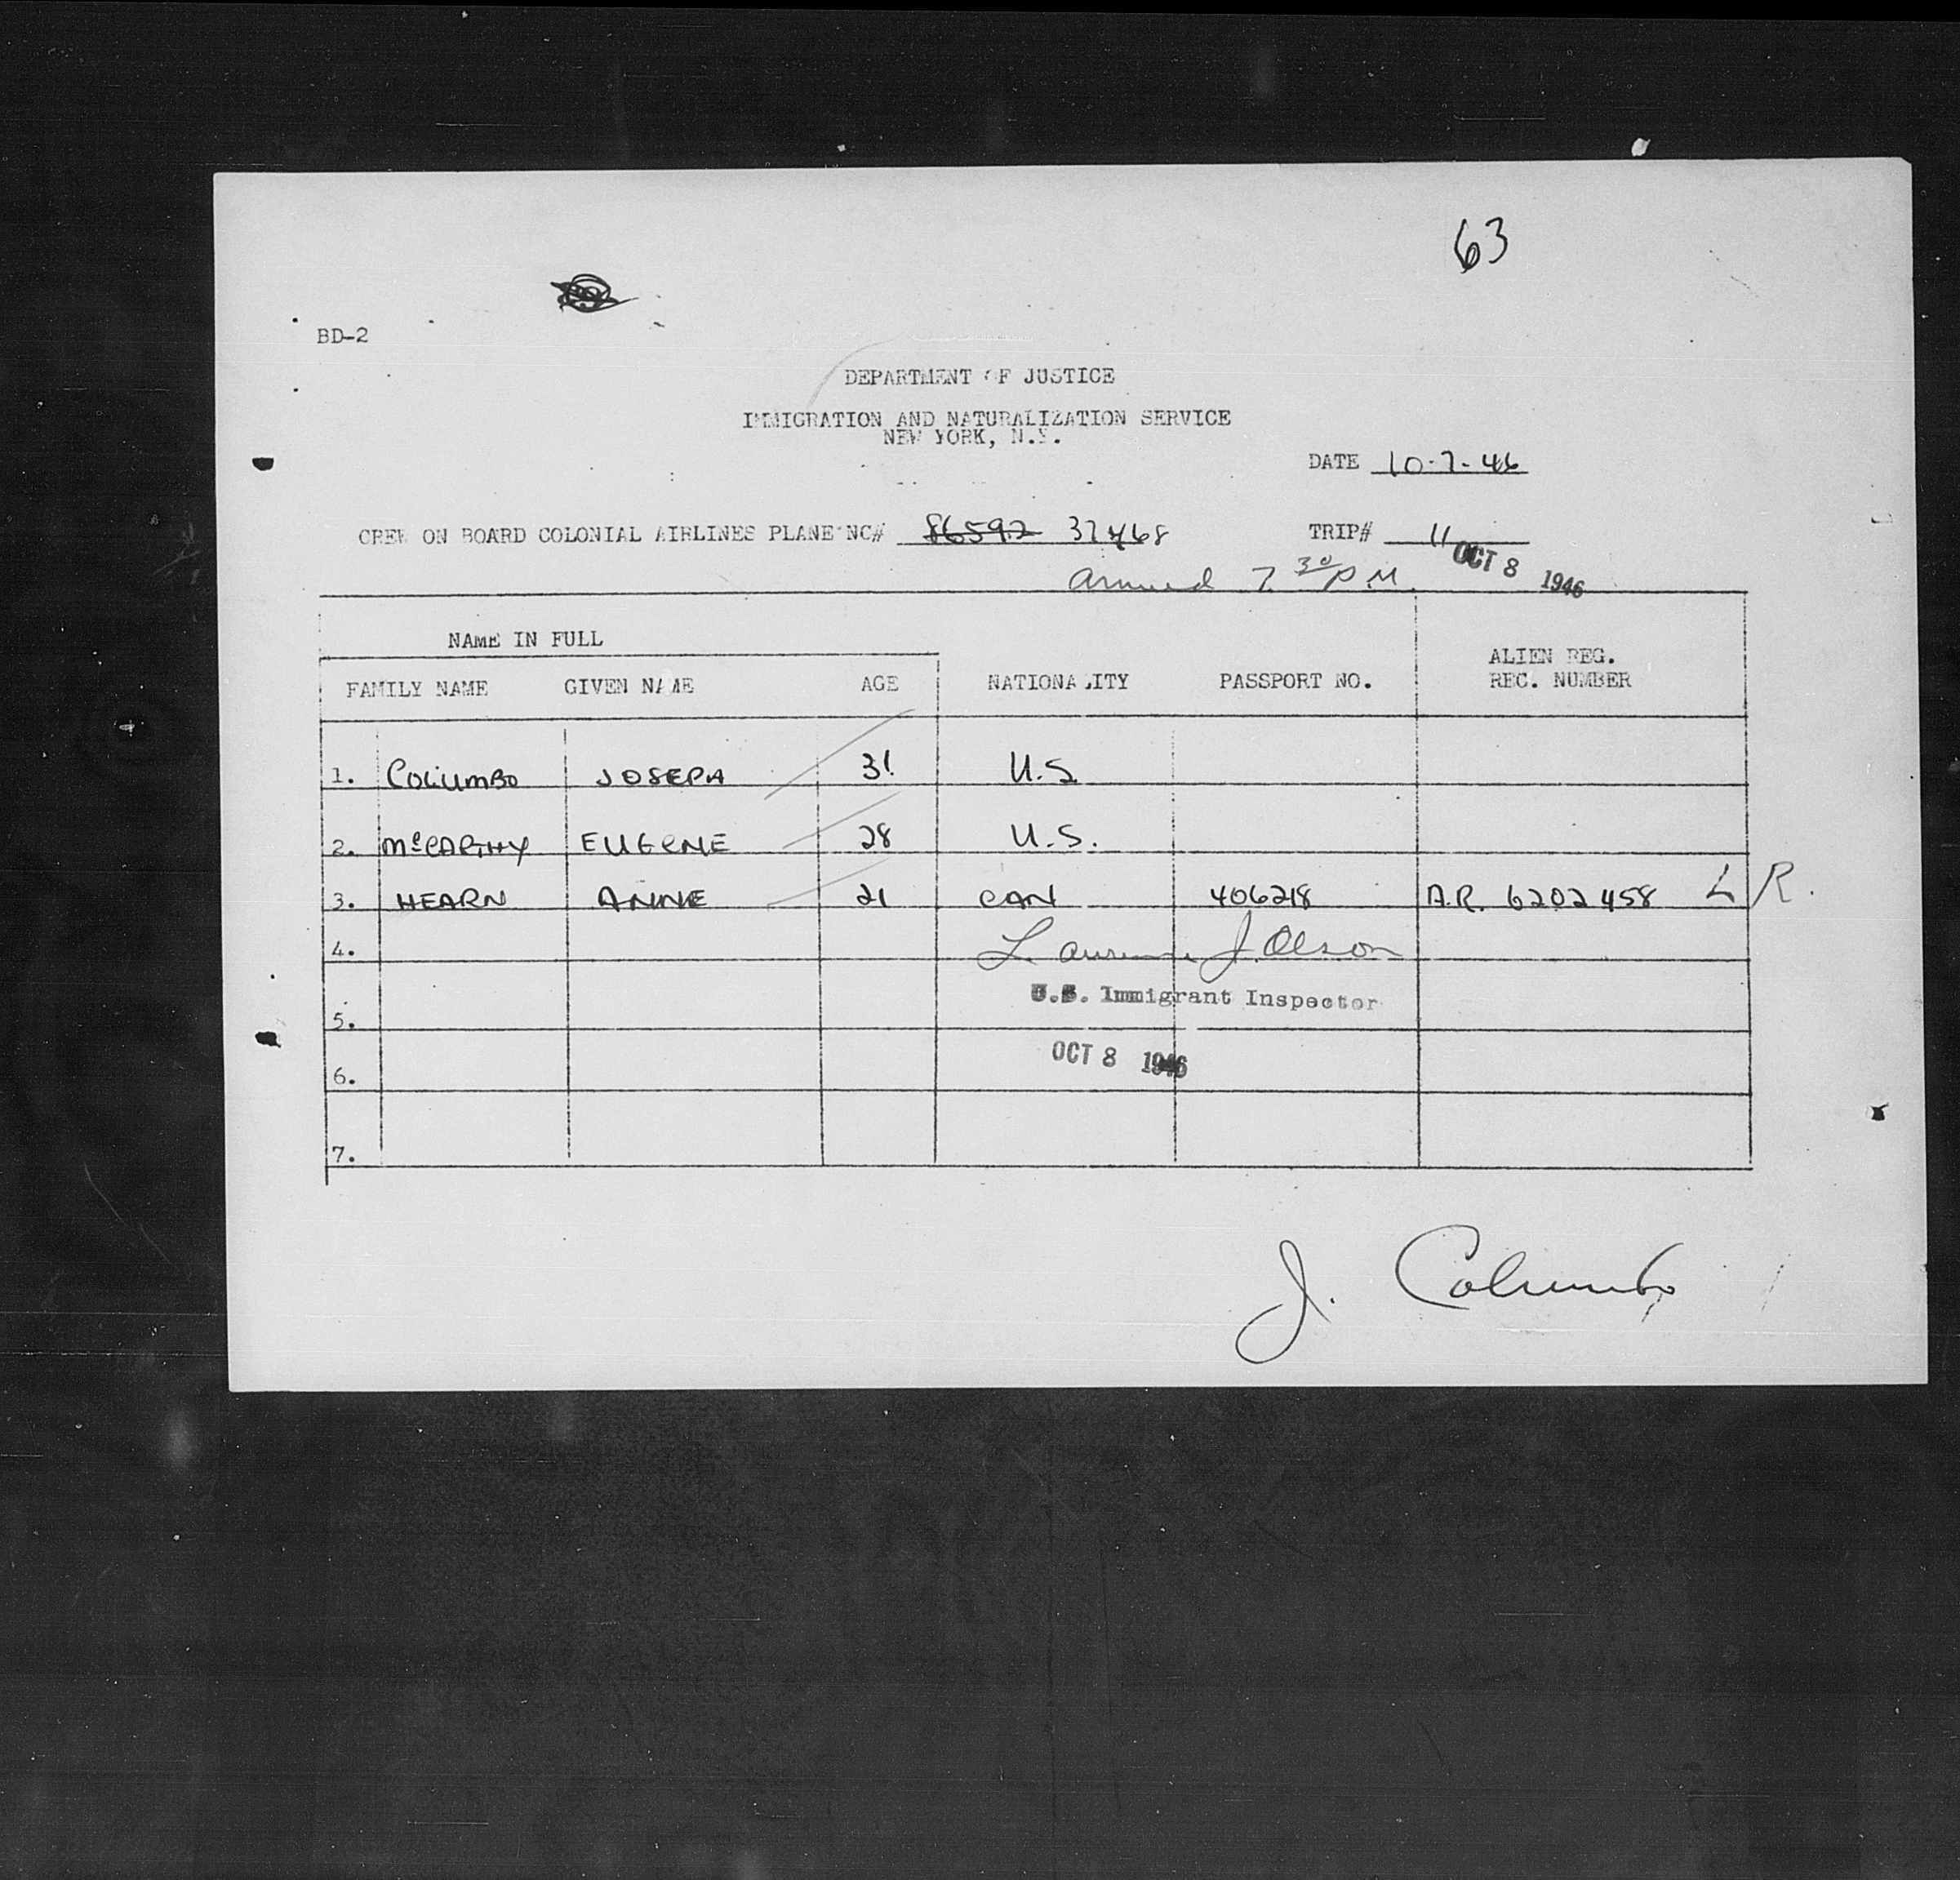 63
BD-2
DEPARTMENT OF JUSTICE
IMMIGRATION AND NATURALIZATION SERVICE
NEW YORK, N.Y.
DATE 10-7-46
CREW ON BOARD COLONIAL AIRLINES PLANE NC# 86592 37468 TRIP# 11
arrived 7 30 P.M. OCT 8 1946
NAME IN FULL
FAMILY NAME GIVEN NAME AGE NATIONALITY PASSPORT NO. ALIEN REG. REC. NUMBER
1. COLUMBO JOSEPH 31 U.S
2. McCARTHY EUGENE 28 U.S.
3. HEARN ANNE 21 CAN 406218 A.R. 6202458 L R.
4. Laurence J. Olson
U.S. Immigrant Inspector
5.
OCT 8 1946
6.
7.
J. Columbo